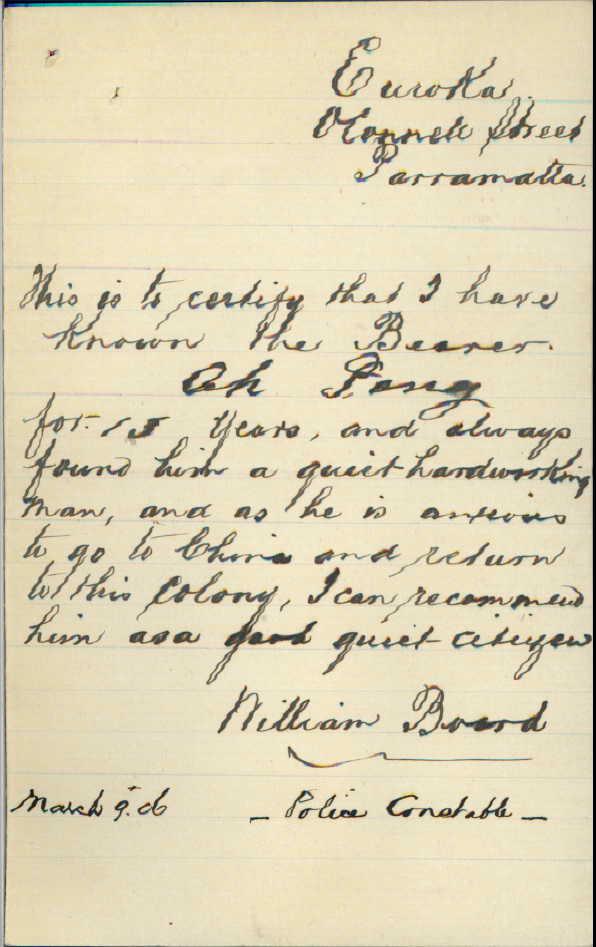 Eureka.
O'Connell Street
Parramatta.
This is to certify that I have
known the Bearer.
Ah Pong
for 15 Years, and always
found him a quiet hardworking
man, and as he is anxious
to go to China and return
to this Colony, I can recommend
him as a good quiet citizen
William Board
March 9. 06 - Police Constable -